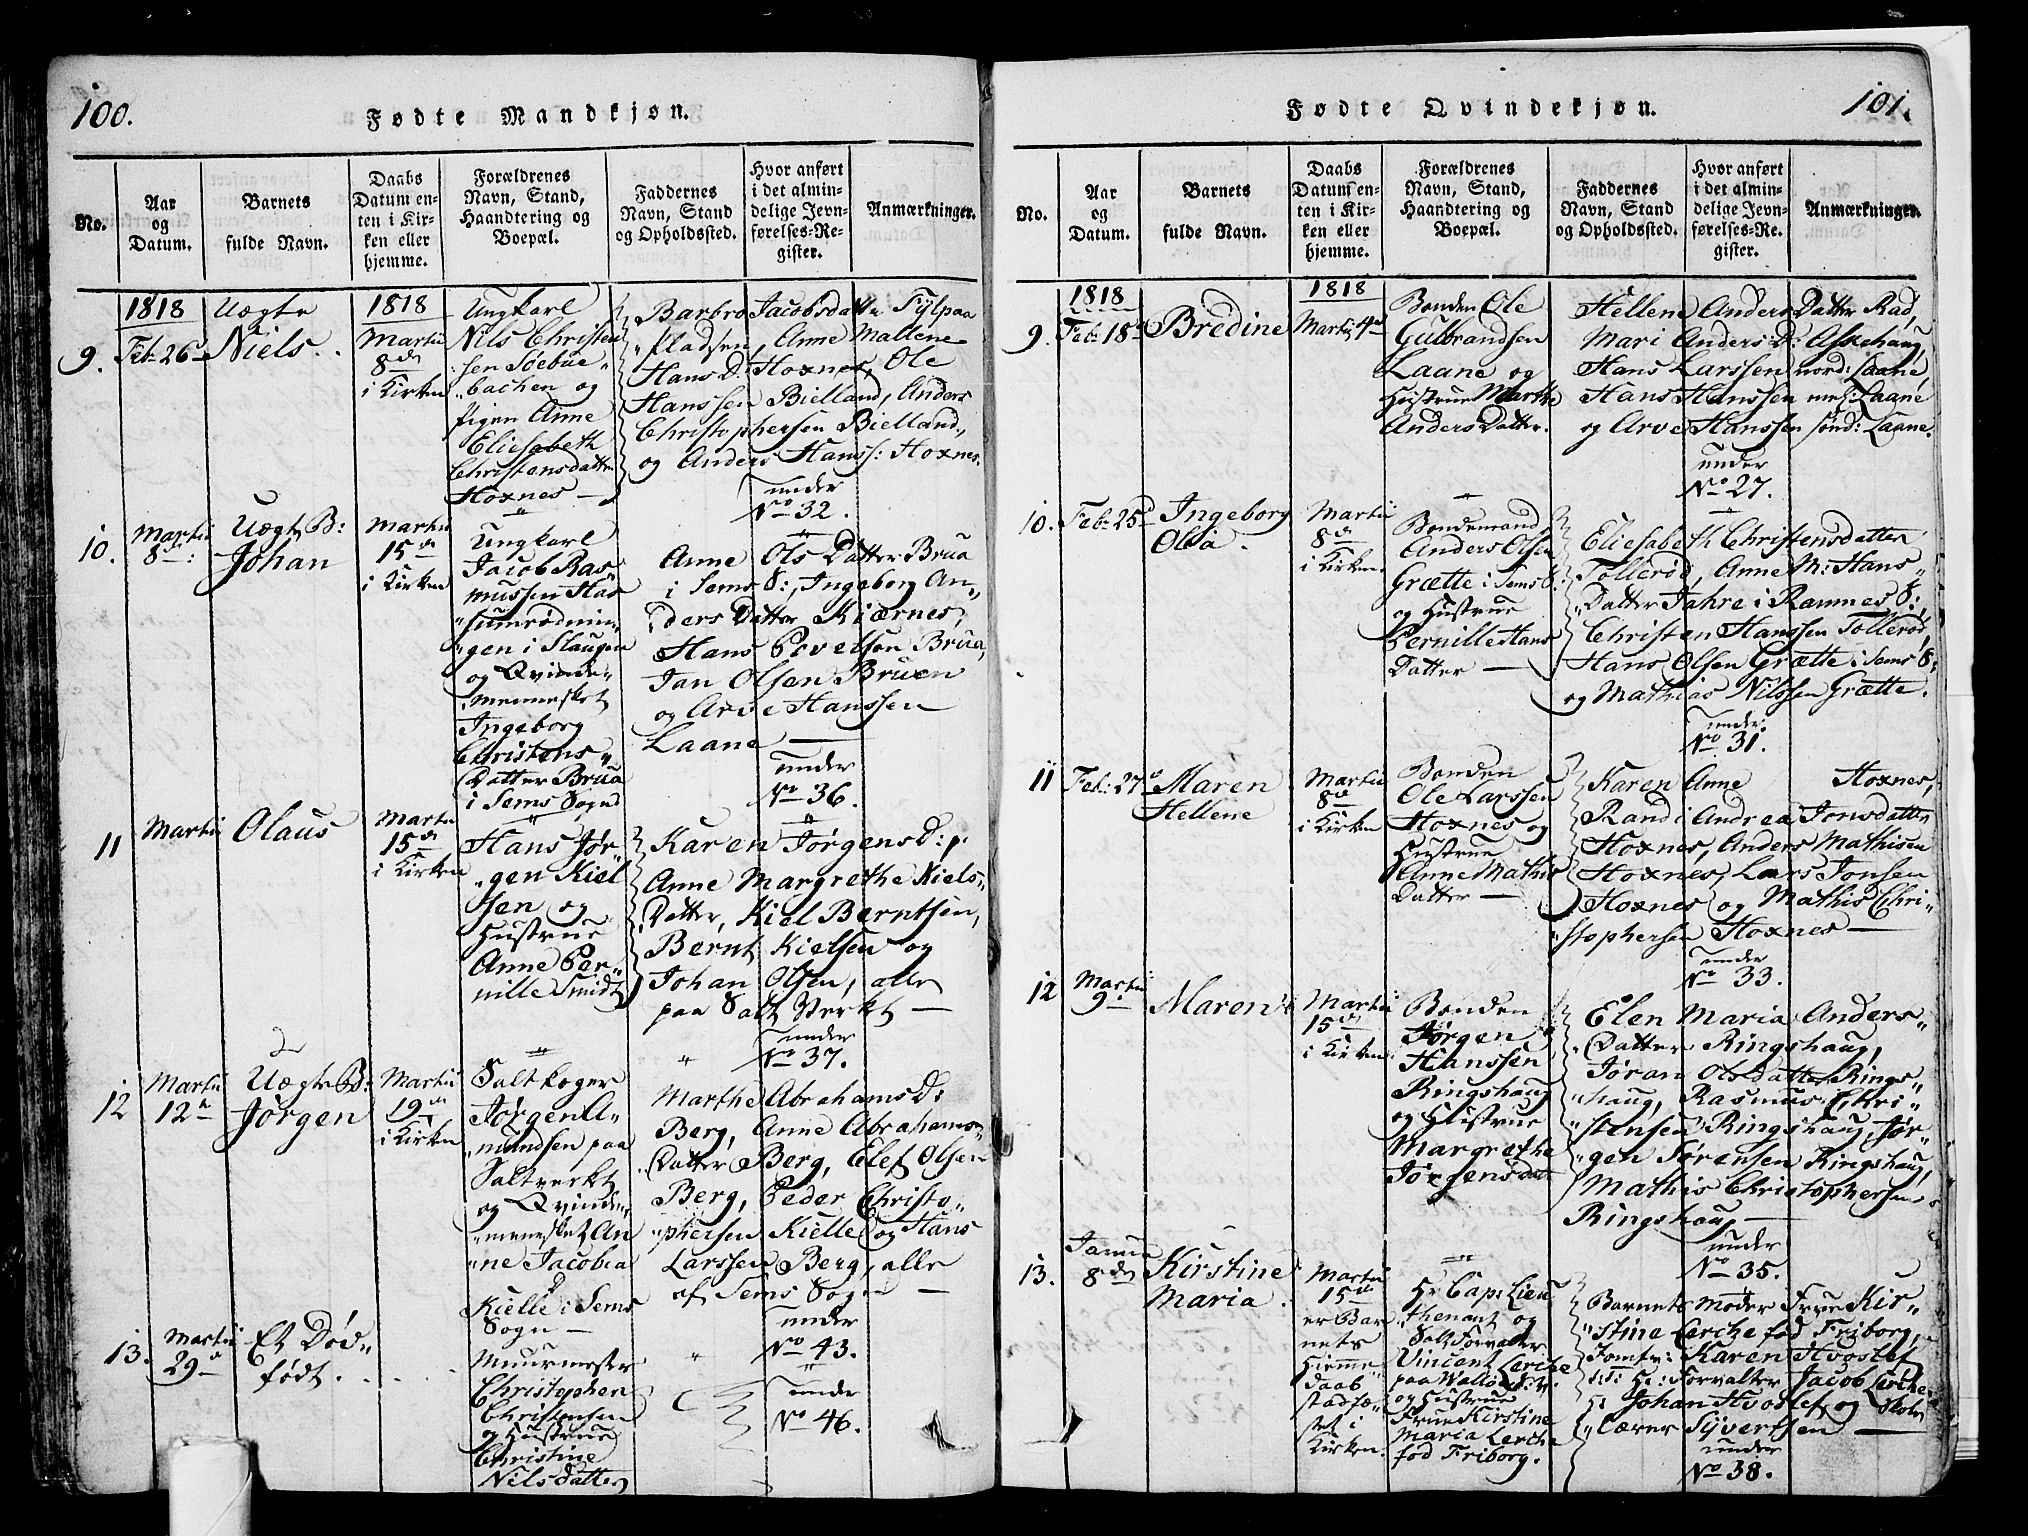 100.
Fødte Mandkjøn.
No.
Aar
og
Datum.
Barnets
fulde Navn.
Daabs
Datum en-
ten i Kir-
ken eller
hjemme.
Forældrenes
Navn, Stand,
Haandtering og
Boepæl.
Faddernes
Navn, Stand
og Opholdssted.
Hvor anført
i det almin-
delige Jevn-
førelses-Re-
gister.
Anmærkninger.
9.
1818
Feb: 26
Uægte
Niels.
1818
Martii
8de
i Kirken
Ungkarl
Nils Christen
sen Søebøe
bachen og
Pigen Anne
Eliesabeth
Christensdatter
Hoxnes
Barbro Jacobsdatter Fÿlpaa
Pladsen, Anne Mallene
Hans D: Hoxnes, Ole
Hanssen Bielland, Anders
Christophersen Bielland,
og Anders Hanss: Hoxnes.
under
No 32.
10.
Martii
8de:
Uægte B:
Johan
Martii
15de
i Kirken
Ungkarl
Jacob Ras
mussen Has
sumrødnin
gen i Slaugen
og Qvinde
mennesket
Ingeborg
Christens
Datter Brua
i Sems Sogn
Anne Ols Datter Brua
i Sems S:, Ingeborg An
ders Datter Kiærnes,
Hans Povelsen Brua,
Jan Olsen Bruen
og Arve Hanssen
Laane
under
No 36.
11
Martii
Olaus
Martii
15de
i Kirken
Hans Jør
gen Kiel
sen og
Hustrue
Anne Per
nille Smidt
Karen Jørgens D: p:
Anne Margrethe Kiels
Datter, Kiel Berntsen,
Bernt Kielsen og
Johan Olsen, alle
paa Salt Verket
under
No 37.
12
Martii
12te
Uægte B:
Jørgen
Martii
19de
i Kirken
Saltkoger
Jørgen A
mundsen paa
Saltverket
og Qvinde
mennesket An
ne Jacobia
Kielle i Sems
Sogn
Marthe Abrahams D:
Berg, Anne Abrahams
Datter Berg, Elef Olsen
Berg, Peder Christo
phersen Kielle og Hans
Larssen Berg, alle
af Sems Sogn
under
No 43.
13.
Martii
29de
Et Død
født.
Muurmester
Christopher
Christensen
og Hustrue
Christine
Nilsdatter
under
No 46.
101.
Fødte Qvindekjøn.
No.
Aar
og
Datum.
Barnets
fulde Navn.
Daabs
Datum en-
ten i Kir-
ken eller
hjemme.
Forældrenes
Navn, Stand,
Haandtering og
Boepæl.
Faddernes
Navn, Stand
og Opholdssted.
Hvor anført
i det almin-
delige Jevn-
førelses-Re-
gister.
Anmærkninger.
9.
1818
Feb: 18de
Bredine
1818
Martii 4de
Bonden Ole
Gulbrandsen
Laane og
Hustrue Marthe
Anders Datter.
Hellene Anders Datter Rad,
Mari Anders D: Askehaug,
Hans Larssen nord: Laane
Hans Hanssen mel: Laane
og Arve Hanssen sönd: Laane.
under
No 27.
10.
Feb: 25de
Ingeborg
Olea.
Martii
8de
i Kirken.
Bondemand
Anders Olsen
Grætte i Sems S:
og Hustrue
Pernille Hans
Datter
Eliesabeth Christensdatter
Tollerød, Anne M: Hans
Datter Jahre i Ramnes S:,
Christen Hanssen Tollerød,
Hans Olsen Grætte i Sems S:
og Mathias Nilssen Grætte.
under
No 31.
11
Feb: 27de
Maren
Hellene
Martii
8de
i Kirken
Bonden
Ole Larssen
Hoxnes og
Hustrue
Anne Mathis
Datter
Karen Anne Hoxnes,
Randi Andrea Jonsdatter
Hoxnes, Anders Mathisen
Hoxnes, Lars Jonsen
Hoxnes og Mathis Chri
stophersen Hoxnes
under
No 33.
12
Martii
9de
Maren
Martii
15de
i Kirken
Bonden
Jørgen
Hanssen
Ringshaug
og Hustrue
Margrethe
Jørgensdat
Elen Maria Anders
Datter Ringshaug,
Jøran Olsdatter Rings
haug, Rasmus Chri
stensen Ringshaug, Jør
gen Sørensen Ringshaug,
Mathis Christophersen
Ringshaug
under
No 35.
13.
Janua
8de
Kirstine
Maria.
Martii
15de
er Bar
nets
Hiemme
daab
stadfæ
stet i
Kirken.
Hr Cap: Lieu
thenant og
Saltforvalter
Vincent Lerche
paa Walløe
og Hustrue
Frue Kirstine
Maria Lerche
fød Friborg.
Barnets Moder Frue Kir
stine Lerche fød Friborg,
Jomfr: Karen Hvoslef
Hr: Forvalter Jacob Lerche
Hr Johan Hvoslef og Skole
Lærer Sÿvertsen
under
No 38.